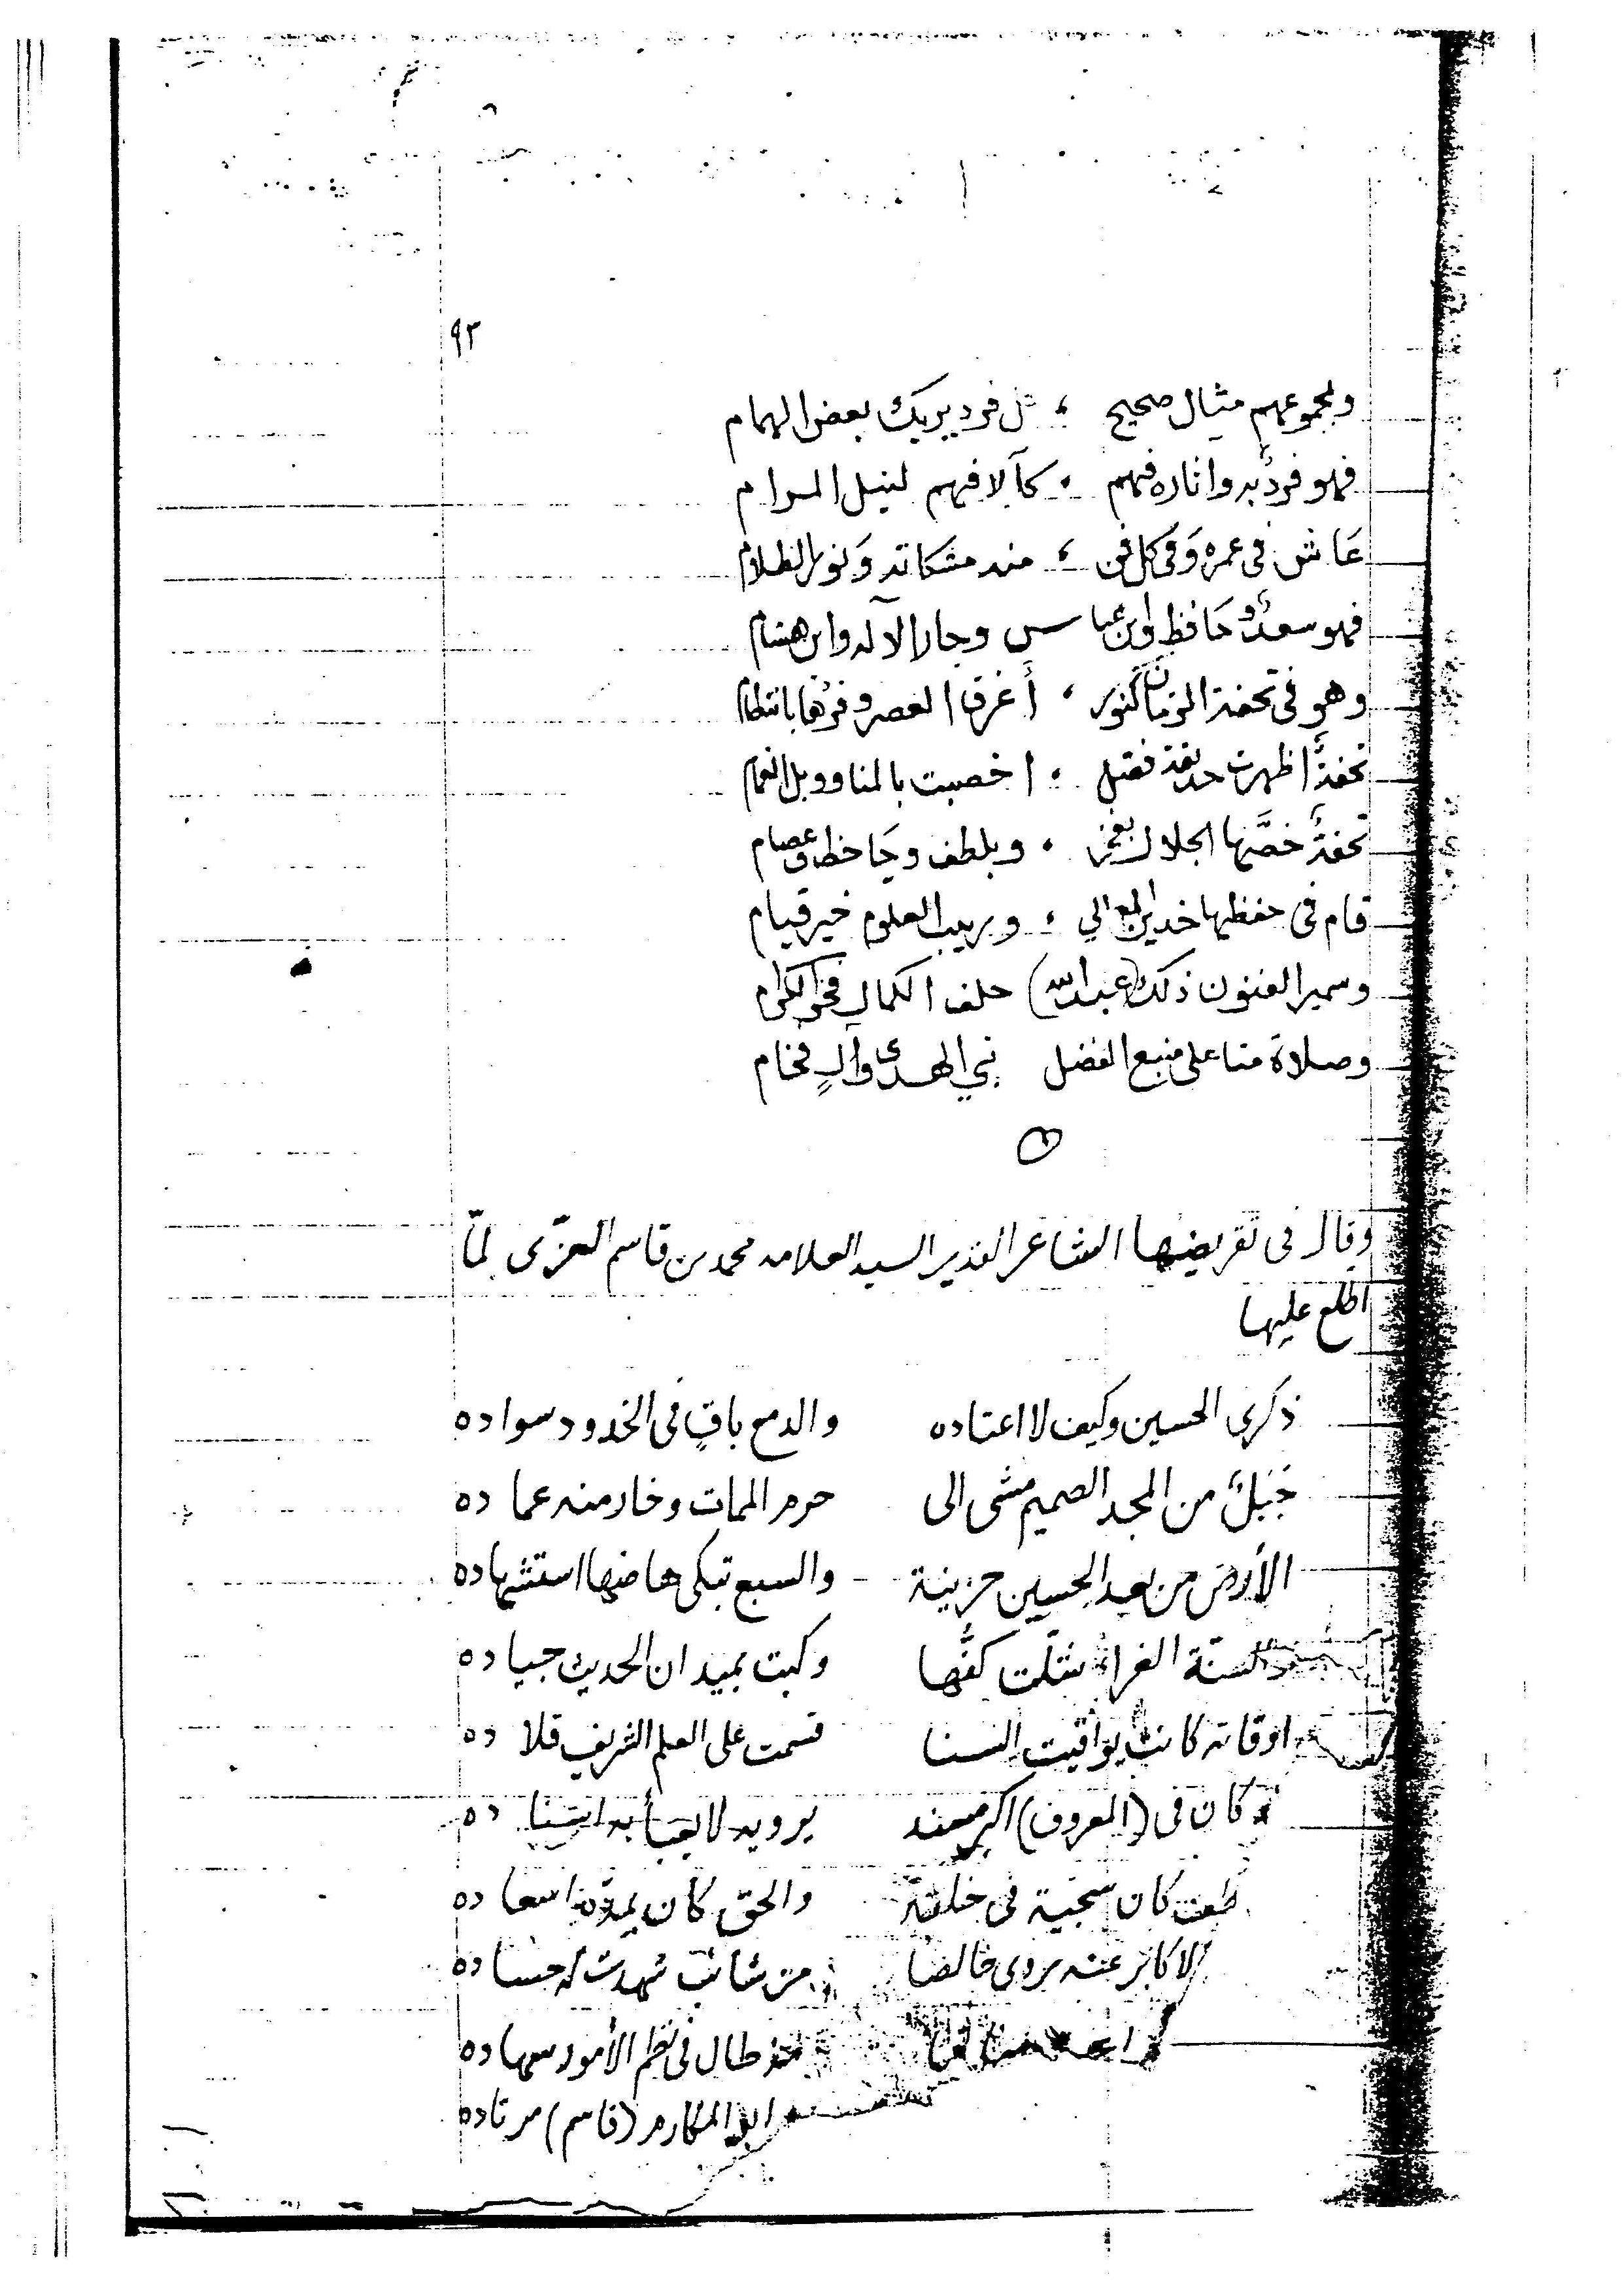 ٩٣
ولمجموعهم مثال صحيح ، فرد يريك بعض الهمام
فهو فردٌ به وآثاره فهم ، كآلافهم لنيل المرام
عَاش في عمره وَفي كل فن ، منه مشكاته وَنور الظلام
فهو سعدٌ وحَافظ وابن عباس وجار الآله وابن هشام
وهو في تحفة الزمان كنور ، أغرق العصر وفرُها بانتظام
تحفةٌ اظهرت حديقة فقبل ، اخصبت بالمنا ووبل الغمام
تحفةٌ خصَّها الجلال بفخر ، وبلطف وجَاحظ وعصام
قام في حفظها خدين المعالي ، وربيب العلوم خير قيام
وسمير الفنون ذلك (عبدالله) حلف الكمال فخر الكرام
وصلاة منا على منبع الفضل نبي الهدى وآلٍ فخام
وقال في تقريضها الشاعر القدير السيد العلامه محمد بن قاسم العزّي لمّا
اطلع عليها
ذكرى الحسين وكيف لا اعتاده والدمع باقٍ في الخدود سواده
جَبَلٌ من المجد الصميم مشى الى حرم الممات وخار منه عماده
الأرض من بعد الحسين حزينة والسبع تبكي هاضها استشهاده
والسنّة الغراءُ شلّت كفُّها وكبت بميدان الحديث جياده
اوقاته كانت يواقيت السنا قسمت على العلم الشريف قلاده
وكان في (المعروف) اكبر مسند يرويه لا يعبأ به اسناده
كان سجية في خلقه والحق كان يمدّه اسعاده
لاكابر عنه يروى خالصا من شائب شهدت له حساده
قد طال في نظم الأمور سهاده
المكارم (قاسم) مرتاده